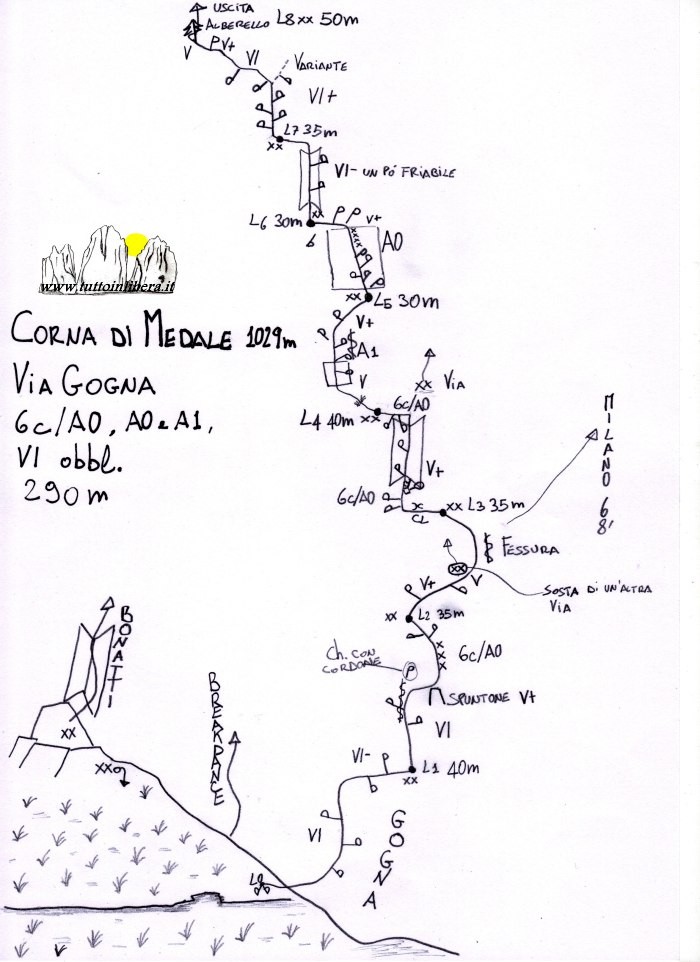 USCITA
ALBERELLO L8 xx 50m
V PV+ VI VARIANTE
VI+
L7 35m
xx
VI- UN PÓ FRIABILE
xx
L6 30m P P V+
6 A0
xxxx
xx L5 30m
V+
A1
V
www.tuttoinlibera.it
CORNA DI MEDALE 1029m
VIA GOGNA
6c/A0, A0 e A1,
VI obbl.
290m
xx VIA
6c/A0
L4 40m xx
V+
6c/A0
x
CL
xx L3 35m
MILANO 68'
FESSURA
xx
SOSTA DI UN'ALTRA
VIA
V+ V
xx L2 35m
xxx 6c/A0
Ch. CON
CORDONE
P
SPUNTONE V+
VI
VI- L1 40m
xx
VI
GOGNA
BONATTI
BREAKDANCE
xx
xx
L0